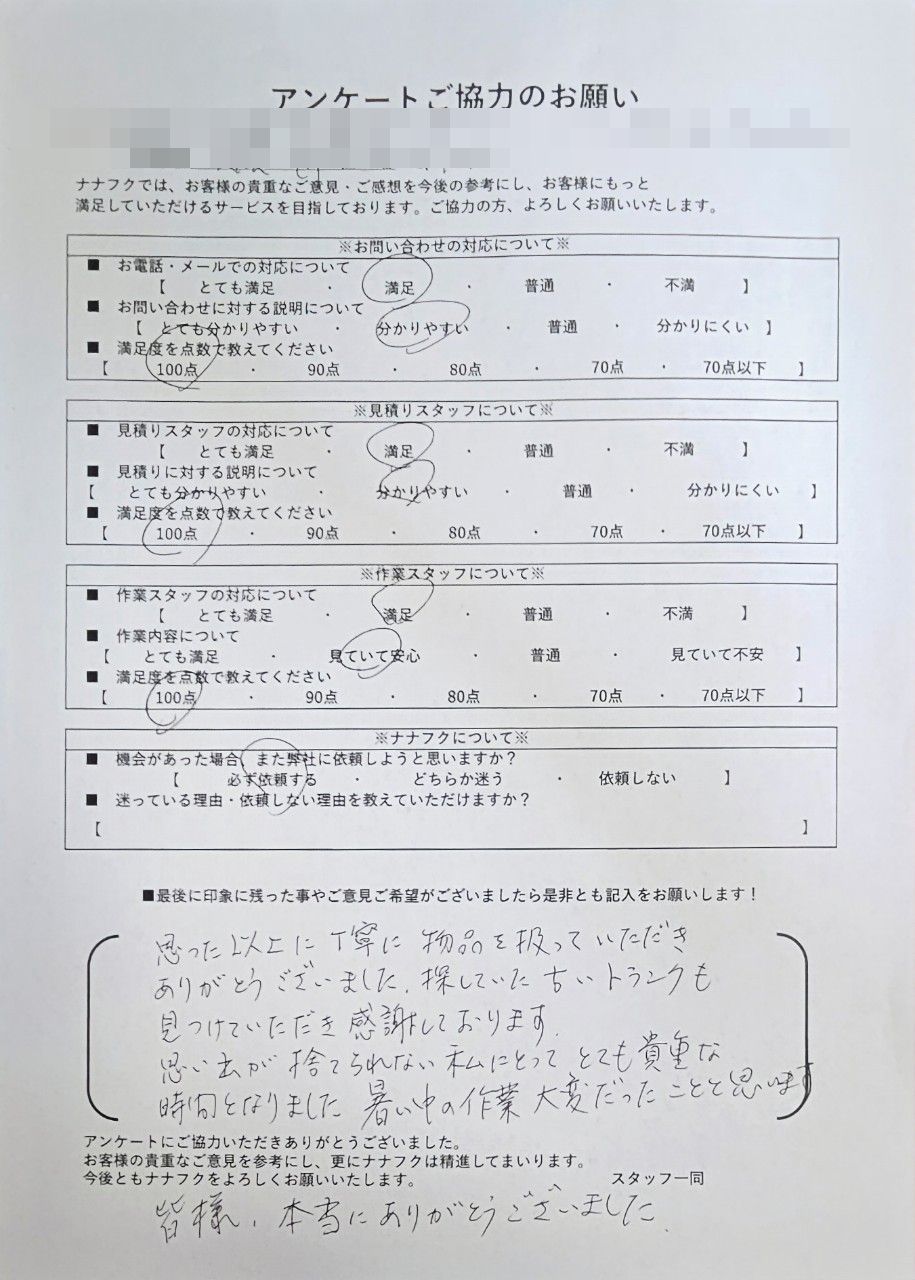 アンケートご協力のお願い
ナナフクでは、お客様の貴重なご意見・ご感想を今後の参考にし、お客様にもっと
満足していただけるサービスを目指しております。ご協力の方、よろしくお願いいたします。
※お問い合わせの対応について※
■ お電話・メールでの対応について
【 とても満足 ・ 満足 ・ 普通 ・ 不満 】
■ お問い合わせに対する説明について
【 とても分かりやすい ・ 分かりやすい ・ 普通 ・ 分かりにくい 】
■ 満足度を点数で教えてください
【 100点 ・ 90点 ・ 80点 ・ 70点 ・ 70点以下 】
※見積りスタッフについて※
■ 見積りスタッフの対応について
【 とても満足 ・ 満足 ・ 普通 ・ 不満 】
■ 見積りに対する説明について
【 とても分かりやすい ・ 分かりやすい ・ 普通 ・ 分かりにくい 】
■ 満足度を点数で教えてください
【 100点 ・ 90点 ・ 80点 ・ 70点 ・ 70点以下 】
※作業スタッフについて※
■ 作業スタッフの対応について
【 とても満足 ・ 満足 ・ 普通 ・ 不満 】
■ 作業内容について
【 とても満足 ・ 見ていて安心 ・ 普通 ・ 見ていて不安 】
■ 満足度を点数で教えてください
【 100点 ・ 90点 ・ 80点 ・ 70点 ・ 70点以下 】
※ナナフクについて※
■ 機会があった場合、また弊社に依頼しようと思いますか？
【 必ず依頼する ・ どちらか迷う ・ 依頼しない 】
■ 迷っている理由・依頼しない理由を教えていただけますか？
【 】
■最後に印象に残った事やご意見ご希望がございましたら是非とも記入をお願いします！
思った以上に丁寧に物品を扱っていただき
ありがとうございました。探していた古いトランクも
見つけていただき感謝しております。
思い出が捨てられない私にとってとても貴重な
時間となりました 暑い中の作業大変だったことと思います
アンケートにご協力いただきありがとうございました。
お客様の貴重なご意見を参考にし、更にナナフクは精進してまいります。
今後ともナナフクをよろしくお願いいたします。 スタッフ一同
皆様、本当にありがとうございました。